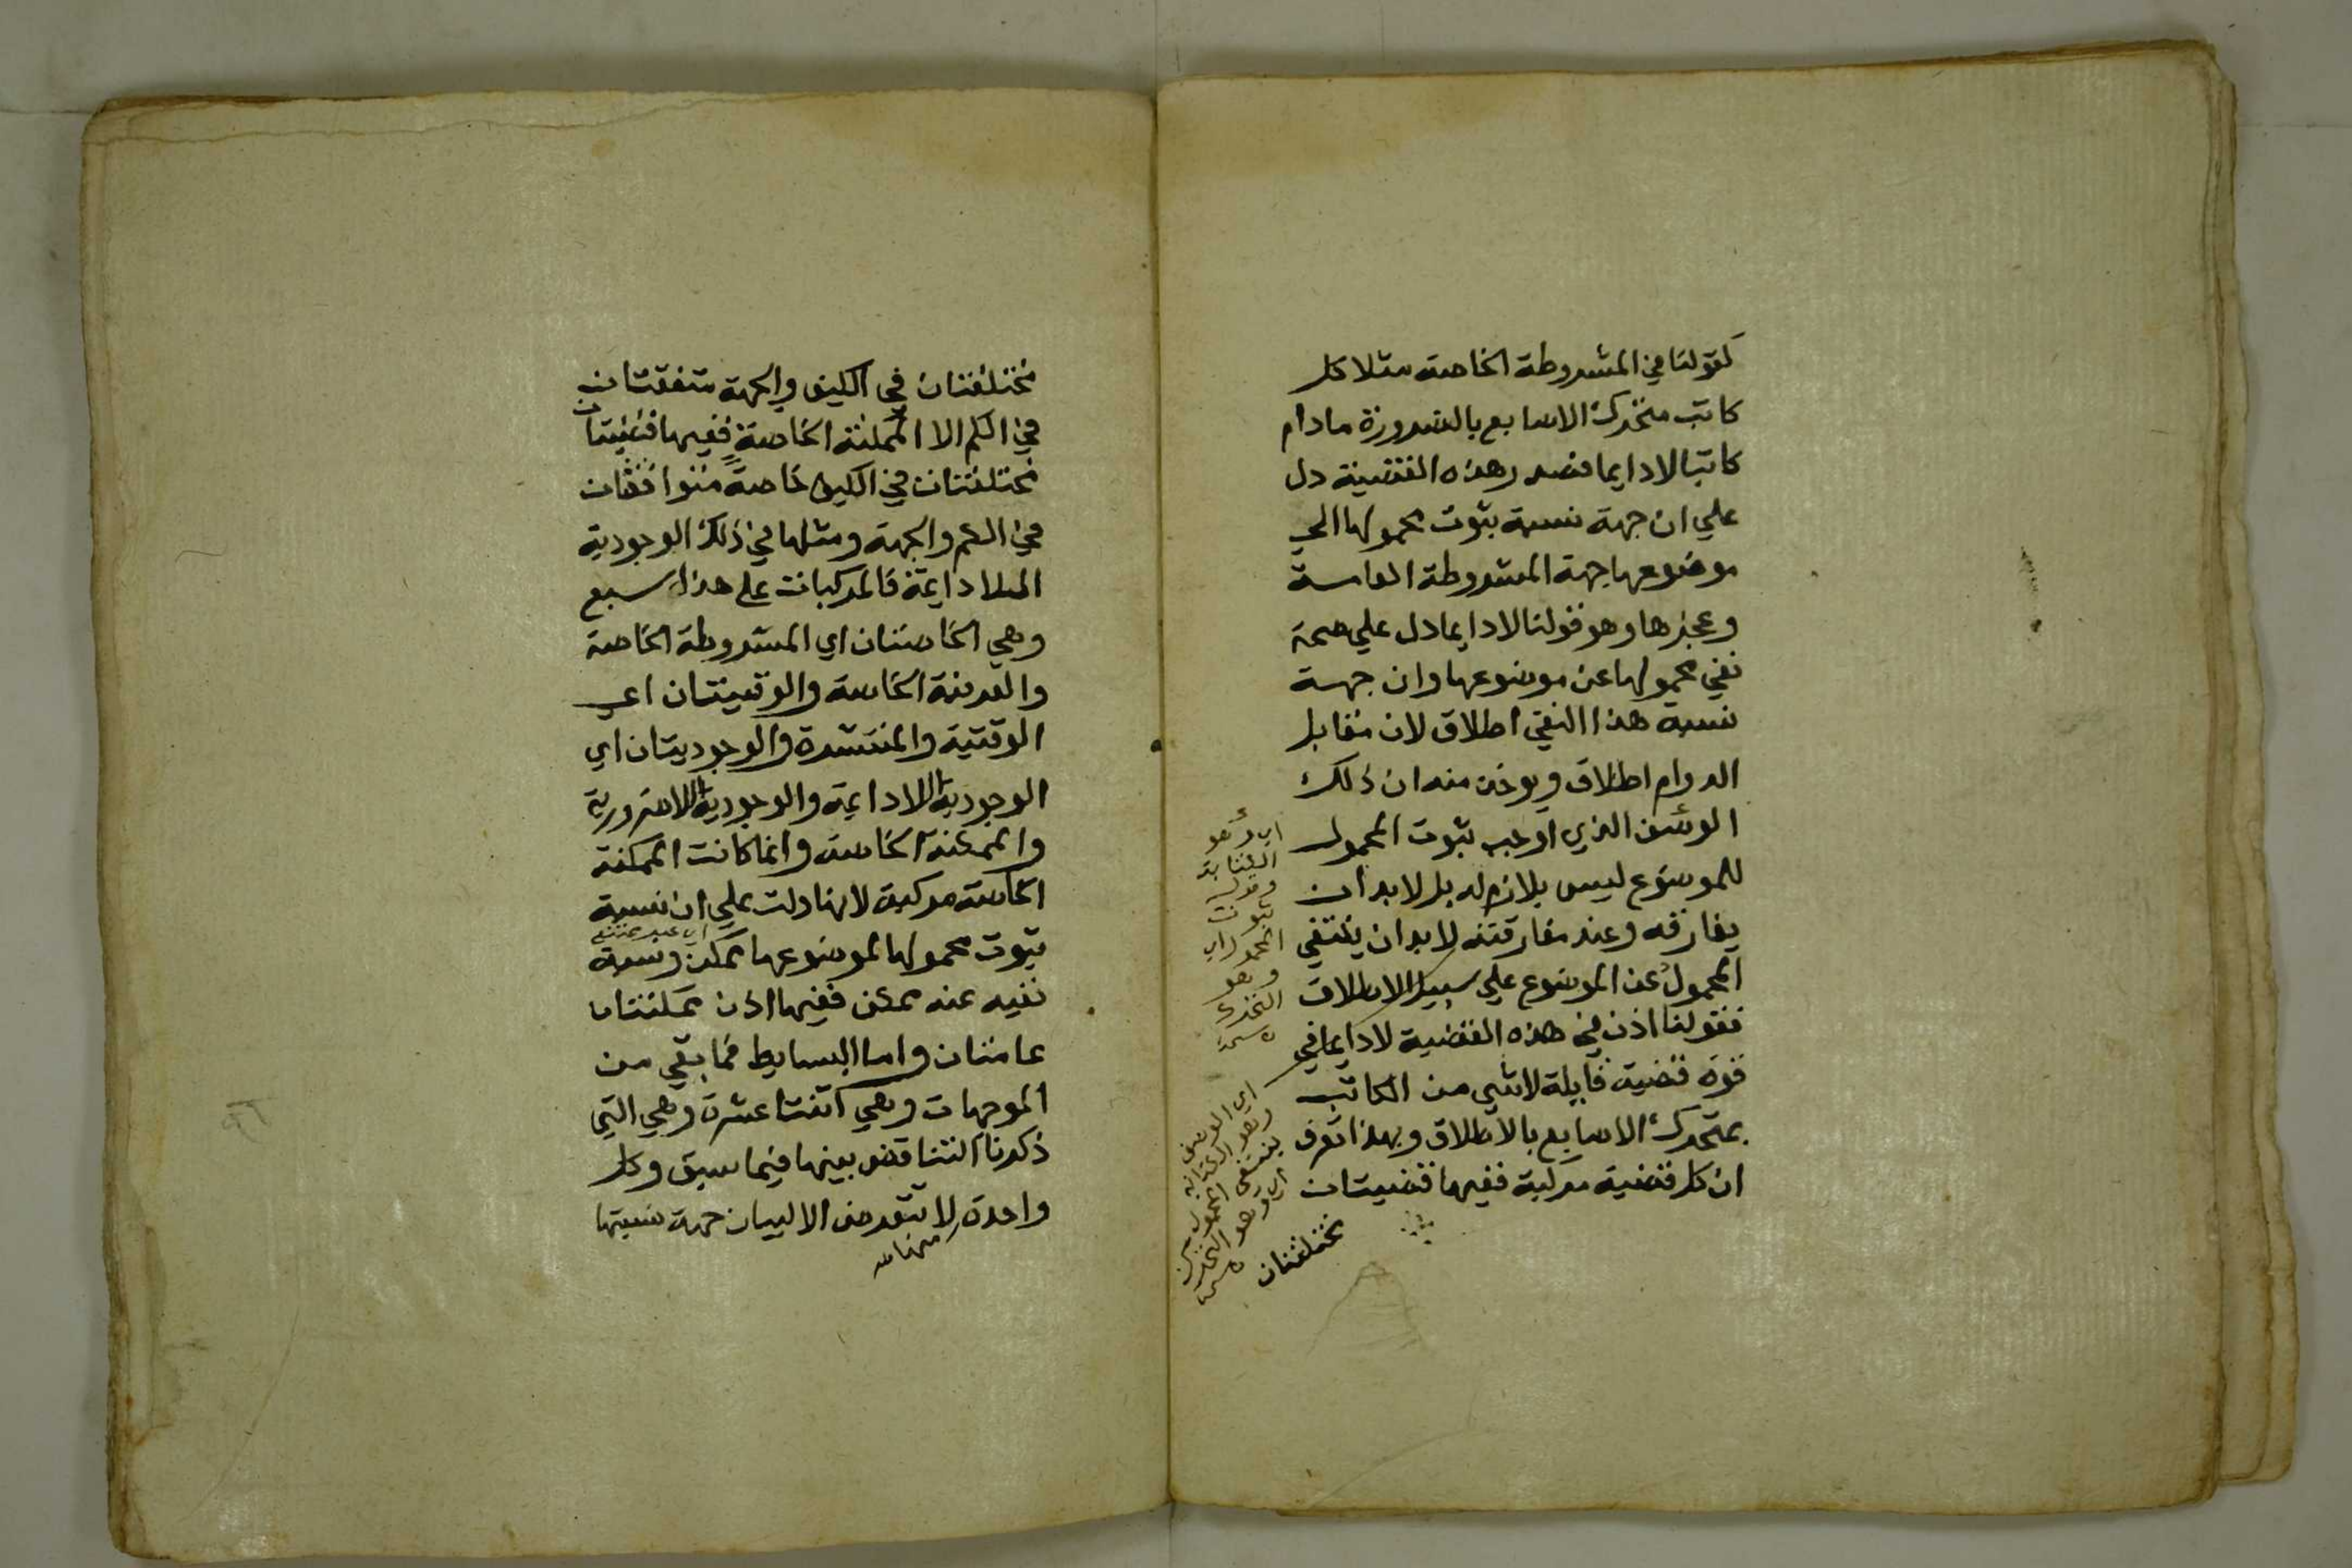 كقولنا في المشروطة الخاصة مثلا كل
كاتب متحرك الاصابع بالضرورة مادام
كاتبا لا دايما فصدر هذه القضية دل
علي ان جهة نسبة ثبوت محمولها الي
موضوعها جهة المشروطة العامة
وعجزها وهو قولنا لا دايما دل علي صحة
نفي محمولها عن موضوعها وان جهة
نسبة هذا النفي اطلاق لان مقابل
الدوام اطلاق ويوخذ منه ان ذلك
الوصف الذي اوجب ثبوت المحمول
للموضوع ليس بلازم له بل لا بد ان
يفارقه وعند مفارقته لا بد ان ينتفي
المحمول عن الموضوع علي سبيل الاطلاق
فقولنا اذن في هذه القضية لا دايما في
قوة قضية قايلة لا شي من الكاتب
بمتحرك الاصابع بالاطلاق وبهذا تعرف
ان كل قضية مركبة ففيها قضيتان
مختلفتان
اي وهو
الكتابة
ثبوت
المحمول اي
وهو
التحرك
اي الوصف
وهو الكتابة
ينتفي المحمول
اي وهو التحرك
مختلفتان في الكيف والجهة متفقتان
في الكم الا الممكنة الخاصة ففيها قضيتان
مختلفتان في الكيف خاصة متوافقتان
في الكم والجهة ومثلها في ذلك الوجودية
اللا دايمة فالمركبات علي هذا سبع
وهي الخاصتان اي المشروطة الخاصة
والعرفية الخاصة والوقتيتان اي
الوقتية والمنتشرة والوجوديتان اي
الوجودية اللا دايمة والوجودية اللا ضرورية
والممكنة الخاصة وانما كانت الممكنة
الخاصة مركبة لانها دلت علي ان نسبة
اي غير ممتنع
ثبوت محمولها لموضوعها ممكن ونسبة
نفيه عنه ممكن ففيها اذن ممكنتان
عامتان واما البسايط فما بقي من
الموجهات وهي اثنتا عشرة وهي التي
ذكرنا التناقض بينها فيما سبق وكل
واحدة لا تتعرض الا لبيان جهة نسبتها
منها